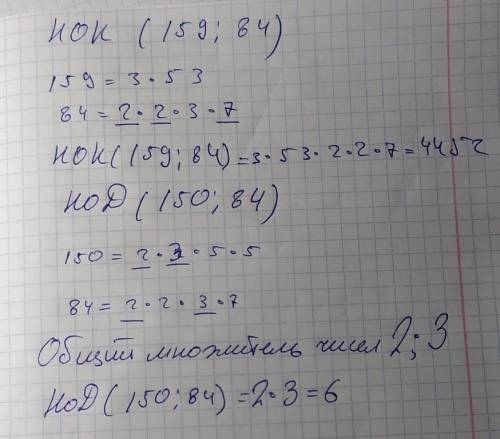 НОК (159; 84)
159 = 3 · 53
84 = 2 · 2 · 3 · 7
НОК(159; 84) = 3 · 53 · 2 · 2 · 7 = 4452
НОД (150; 84)
150 = 2 · 3 · 5 · 5
84 = 2 · 2 · 3 · 7
Общий множитель чисел 2; 3
НОД (150; 84) = 2 · 3 = 6